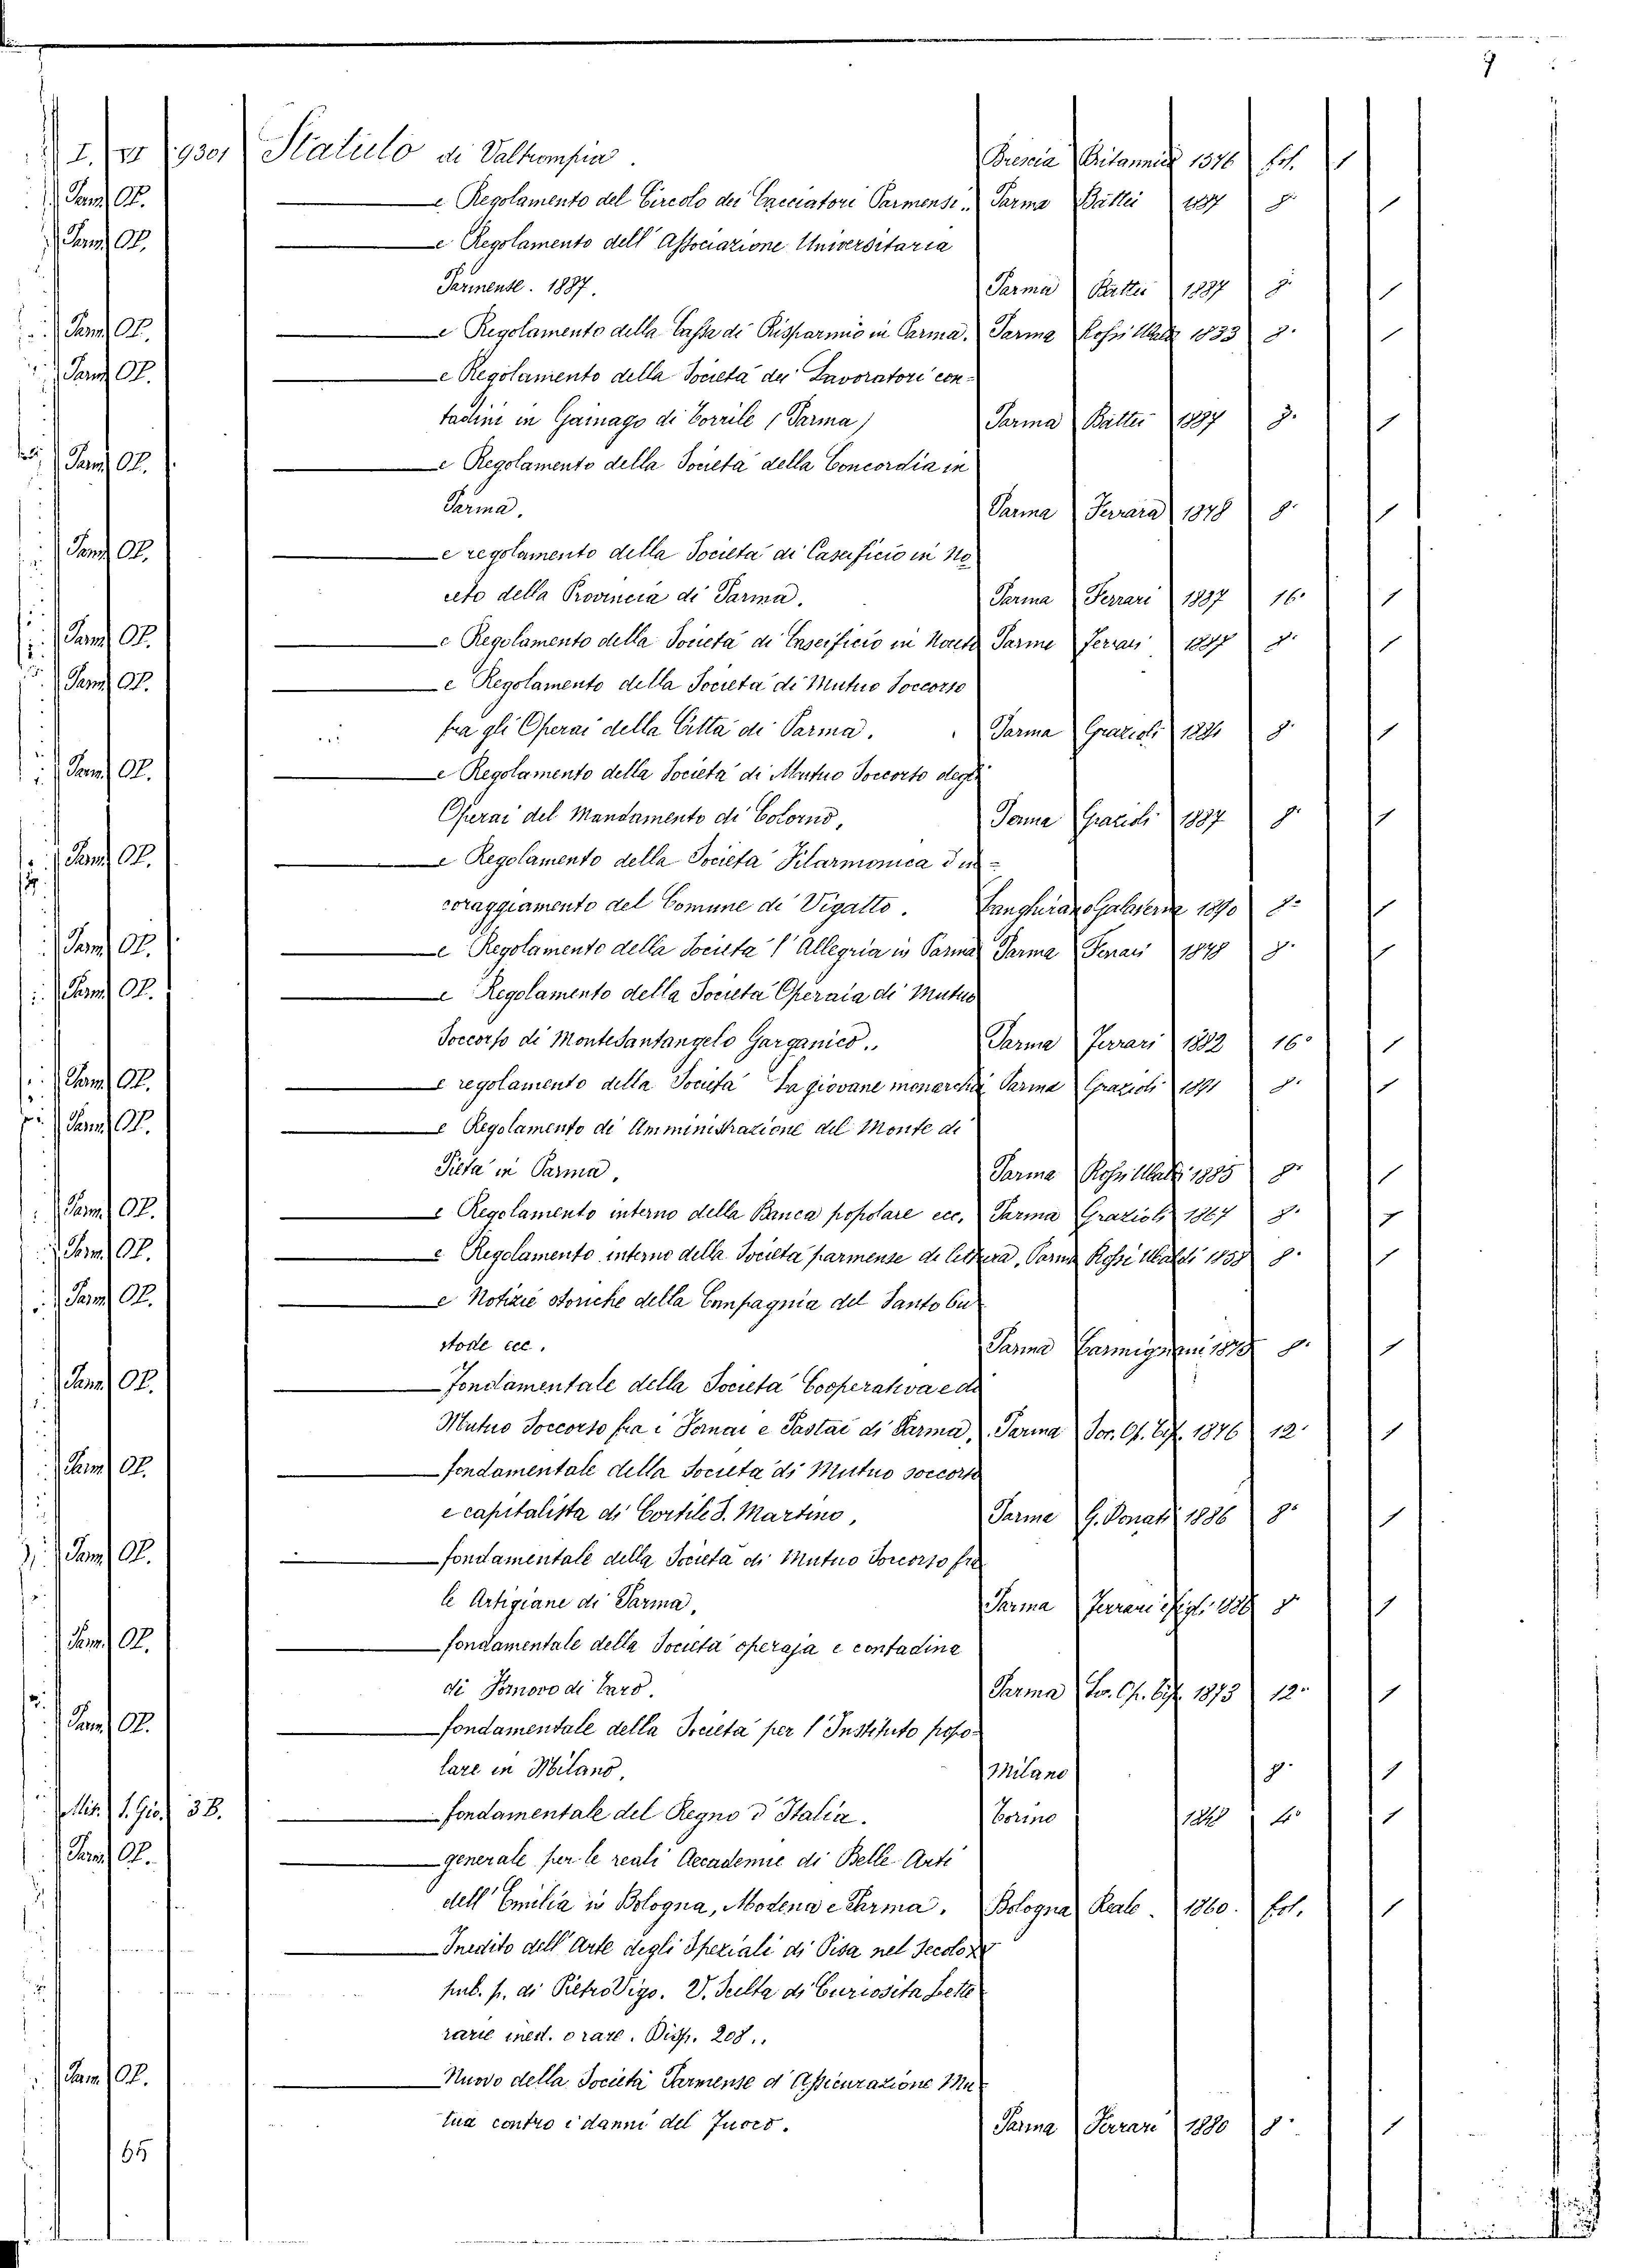 9
I. VI 9301 Statuto di Valtrompia. Brescia Britannico 1576 fol. 1
Parm. OP. e Regolamento del Circolo dei Cacciatori Parmensi. Parma Battei 1887 8. 1
Parm. OP. e Regolamento dell'Associazione Universitaria
Parmense. 1887. Parma Battei 1887 8. 1
Parm. OP. e Regolamento della Cassa di Risparmio in Parma. Parma Rossi Ubaldi 1833 8. 1
Parm. OP. e Regolamento della Società dei Lavoratori con-
tadini in Gainago di Torrile (Parma) Parma Battei 1887 8. 1
Parm. OP. e Regolamento della Società della Concordia in
Parma. Parma Ferrara 1878 8. 1
Parm. OP. e regolamento della Società di Caseificio in No
ceto della Provincia di Parma. Parma Ferrari 1887 16. 1
Parm. OP. e Regolamento della Società di Caseificio in Noceto Parma Ferrari 1887 8. 1
Parm. OP. e Regolamento della Società di Mutuo Soccorso
fra gli Operai della Città di Parma. Parma Grazioli 1881 8. 1
Parm. OP. e Regolamento della Società di Mutuo Soccorso degli
Operai del Mandamento di Colorno, Parma Grazioli 1887 8. 1
Parm. OP. e Regolamento della Società Filarmonica d'in=
coraggiamento del Comune di Vigatto. Langhirano Galaverna 1890 8. 1
Parm. OP. e Regolamento della Società l'Allegria in Parma Parma Ferrari 1878 8. 1
Parm. OP. e Regolamento della Società Operaia di Mutuo
Soccorso di Montesantangelo Garganico. Parma Ferrari 1882 16. 1
Parm. OP. e regolamento della Società La giovane monarchia Parma Grazioli 1891 8. 1
Parm. OP. e Regolamento di Amministrazione del Monte di
Pietà in Parma. Parma Rossi Ubaldi 1885 8. 1
Parm. OP. e Regolamento interno della Banca popolare ecc. Parma Grazioli 1867 8. 1
Parm. OP. e Regolamento interno della Società parmense di lettura, Parma Rossi Ubaldi 1858 8. 1
Parm. OP. e Notizie storiche della Compagnia del Santo Cu
stode ecc. Parma Carmignani 1878 8. 1
Parm. OP. Fondamentale della Società Cooperativa e di
Mutuo Soccorso fra i Fornai e Pastai di Parma, Parma Soc. Op. Tip. 1876 12. 1
Parm. OP. fondamentale della Società di Mutuo soccorso
e capitalista di Cortile S. Martino, Parma G. Donati 1886 8. 1
Parm. OP. fondamentale della Società di Mutuo Soccorso fra
le Artigiane di Parma, Parma Ferrari e figli 8. 1
Parm. OP. fondamentale della Società operaja e contadina
di Fornovo di Taro. Parma Soc. Op. Tip. 1873 12. 1
Parm. OP. fondamentale della Società per l'Instituto popo-
lare in Milano, Milano 8. 1
Mis. S. Gio. 38. fondamentale del Regno d'Italia. Torino 1848 4. 1
Parm. OP. generale per le reali Accademie di Belle Arti
dell'Emilia in Bologna, Modena e Parma. Bologna Reale. 1860. fol. 1
Inedito dell'Arte degli Speziali di Pisa nel Secolo XV
pub. p. di Pietro Vigo. V. Scelta di Curiosità Lette
rarie ined. o rare. Disp. 208.
Parm. OP. Nuovo della Società Parmense d'Assicurazione Mu
tua contro i danni del Fuoco. Parma Ferrari 1880 8. 1
65